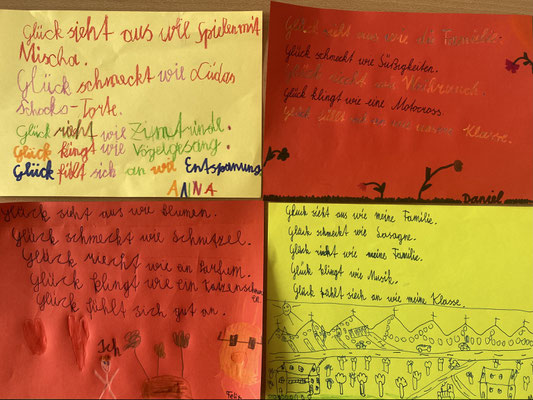 Glück sieht aus wie Spielen mit
Mischa.
Glück schmeckt wie Lúdas
Schoko-Torte.
Glück riecht wie Zimtrinde.
Glück kingt wie Vögelgesang.
Glück fühlt sich an wie Entspannung
ANNA
Glück sieht aus wie die Familie.
Glück schmeckt wie Süßigkeiten.
Glück riecht wie Weihrauch.
Glück klingt wie eine Motocross.
Glück fühlt sich an wie Klasse.
Daniel
Glück sieht aus wie Blumen.
Glück schmeckt wie Schnitzel.
Glück riecht wie an Parfum.
Glück klingt wie ein Katzenschnu
Glück fühlt sich gut an.
Ich
Felix
Glück sieht aus wie meine Familie.
Glück schmeckt wie Lasagne.
Glück riecht wie meine Familie.
Glück klingt wie Musik.
Glück fühlt siech an wie meine Klasse.